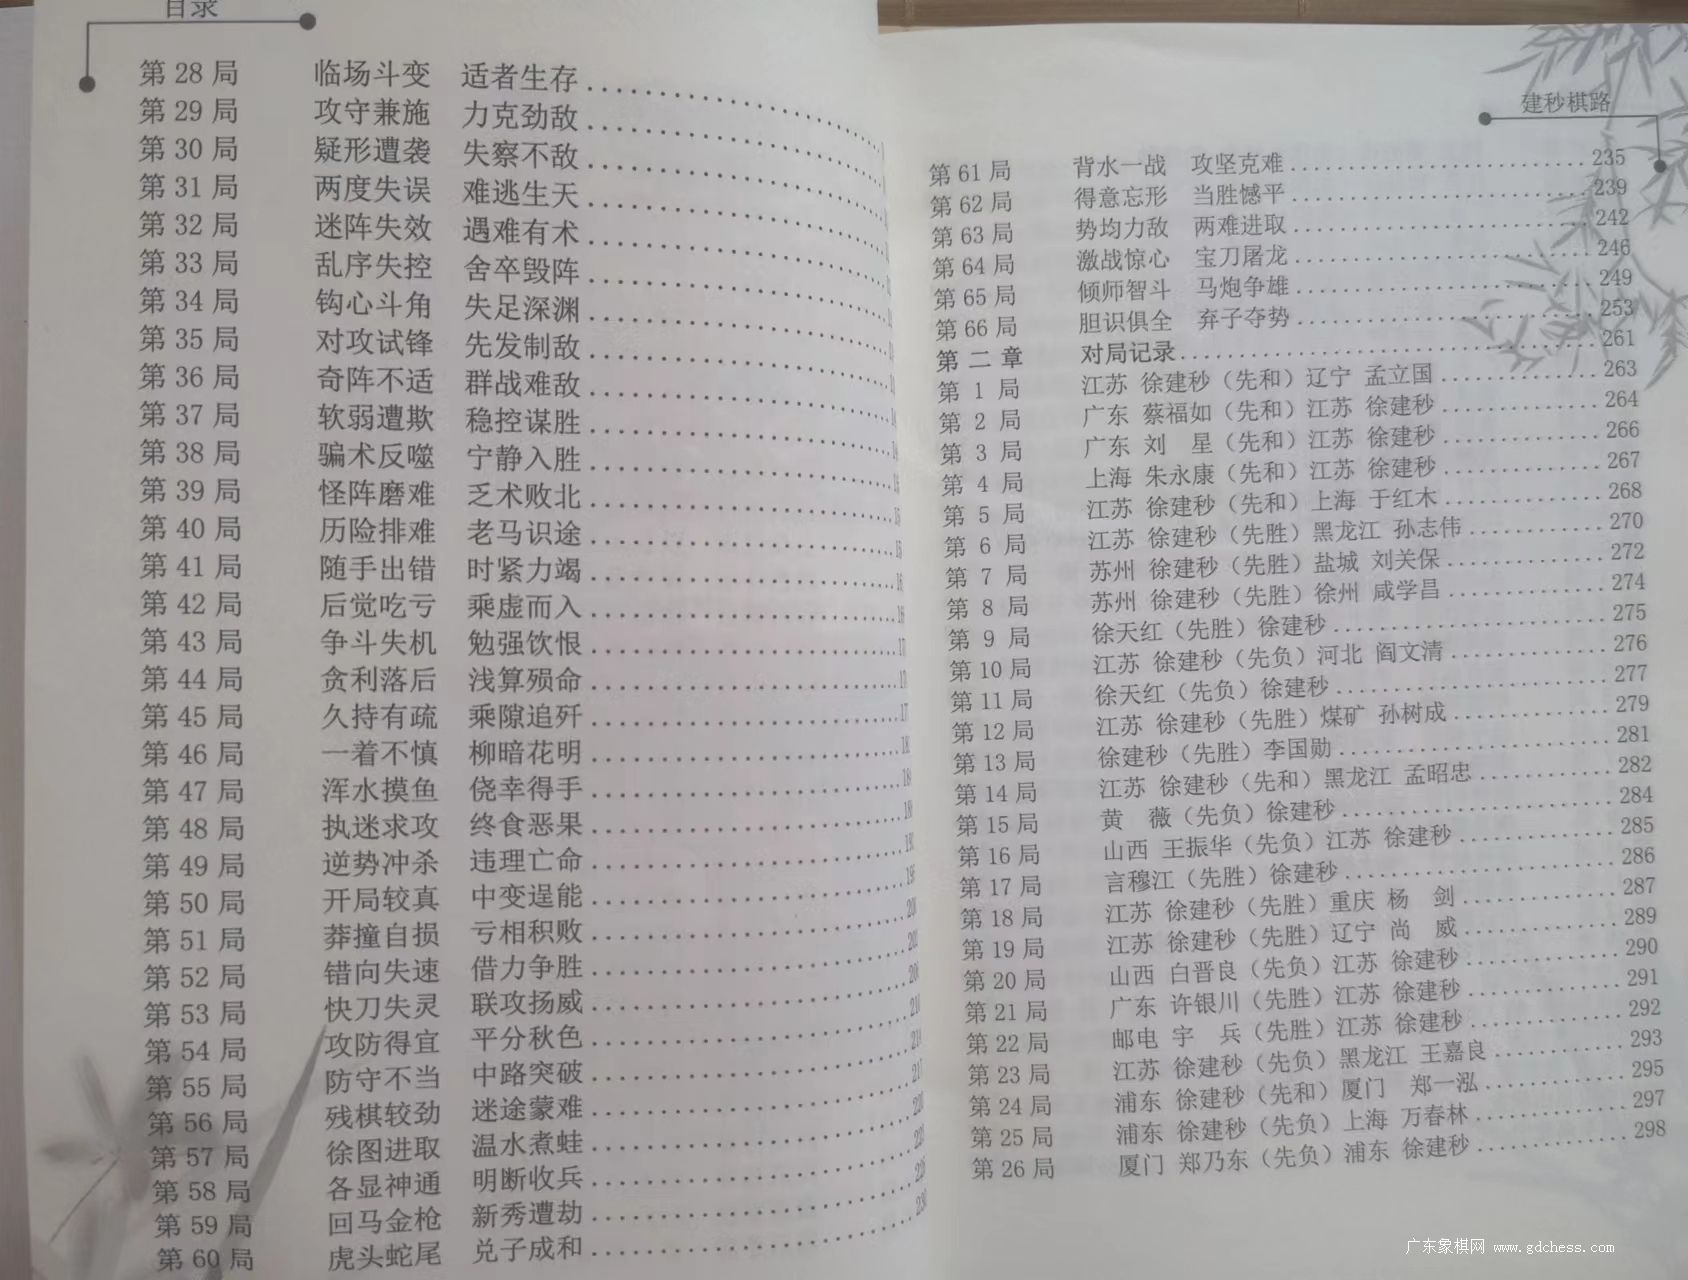 目录
第 28 局 临场斗变 适者生存
第 29 局 攻守兼施 力克劲敌
第 30 局 疑形遭袭 失察不敌
第 31 局 两度失误 难逃生天
第 32 局 迷阵失效 遇难有术
第 33 局 乱序失控 舍卒毁阵
第 34 局 钩心斗角 失足深渊
第 35 局 对攻试锋 先发制敌
第 36 局 奇阵不适 群战难敌
第 37 局 软弱遭欺 稳控谋胜
第 38 局 骗术反噬 宁静入胜
第 39 局 怪阵磨难 乏术败北
第 40 局 历险排难 老马识途
第 41 局 随手出错 时紧力竭
第 42 局 后觉吃亏 乘虚而入
第 43 局 争斗失机 勉强饮恨
第 44 局 贪利落后 浅算殒命
第 45 局 久持有疏 乘隙追歼
第 46 局 一着不慎 柳暗花明
第 47 局 浑水摸鱼 侥幸得手
第 48 局 执迷求攻 终食恶果
第 49 局 逆势冲杀 违理亡命
第 50 局 开局较真 中变逞能
第 51 局 莽撞自损 亏相积败
第 52 局 错向失速 借力争胜
第 53 局 快刀失灵 联攻扬威
第 54 局 攻防得宜 平分秋色
第 55 局 防守不当 中路突破
第 56 局 残棋较劲 迷途蒙难
第 57 局 徐图进取 温水煮蛙
第 58 局 各显神通 明断收兵
第 59 局 回马金枪 新秀遭劫
第 60 局 虎头蛇尾 兑子成和
建秒棋路
第 61 局 背水一战 攻坚克难 235
第 62 局 得意忘形 当胜憾平 239
第 63 局 势均力敌 两难进取 242
第 64 局 激战惊心 宝刀屠龙 246
第 65 局 倾师智斗 马炮争雄 249
第 66 局 胆识俱全 弃子夺势 253
第 二 章 对局记录 261
第 1 局 江苏 徐建秒（先和）辽宁 孟立国 263
第 2 局 广东 蔡福如（先和）江苏 徐建秒 264
第 3 局 广东 刘 星（先和）江苏 徐建秒 266
第 4 局 上海 朱永康（先和）江苏 徐建秒 267
第 5 局 江苏 徐建秒（先和）上海 于红木 268
第 6 局 江苏 徐建秒（先胜）黑龙江 孙志伟 270
第 7 局 苏州 徐建秒（先胜）盐城 刘关保 272
第 8 局 苏州 徐建秒（先胜）徐州 咸学昌 274
第 9 局 徐天红（先胜）徐建秒 275
第 10 局 江苏 徐建秒（先负）河北 阎文清 276
第 11 局 徐天红（先负）徐建秒 277
第 12 局 江苏 徐建秒（先胜）煤矿 孙树成 279
第 13 局 徐建秒（先胜）李国勋 281
第 14 局 江苏 徐建秒（先和）黑龙江 孟昭忠 282
第 15 局 黄 薇（先负）徐建秒 284
第 16 局 山西 王振华（先负）江苏 徐建秒 285
第 17 局 言穆江（先胜）徐建秒 286
第 18 局 江苏 徐建秒（先胜）重庆 杨 剑 287
第 19 局 江苏 徐建秒（先胜）辽宁 尚 威 289
第 20 局 山西 白晋良（先负）江苏 徐建秒 290
第 21 局 广东 许银川（先胜）江苏 徐建秒 291
第 22 局 邮电 宇 兵（先胜）江苏 徐建秒 292
第 23 局 江苏 徐建秒（先负）黑龙江 王嘉良 293
第 24 局 浦东 徐建秒（先和）厦门 郑一泓 295
第 25 局 浦东 徐建秒（先负）上海 万春林 297
第 26 局 厦门 郑乃东（先负）浦东 徐建秒 298
广东象棋网 www.gdchess.com